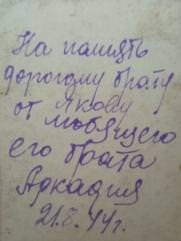 На память
дорогому брату
от Якову
любящего
его брата
Аркадия
21.8.44г.